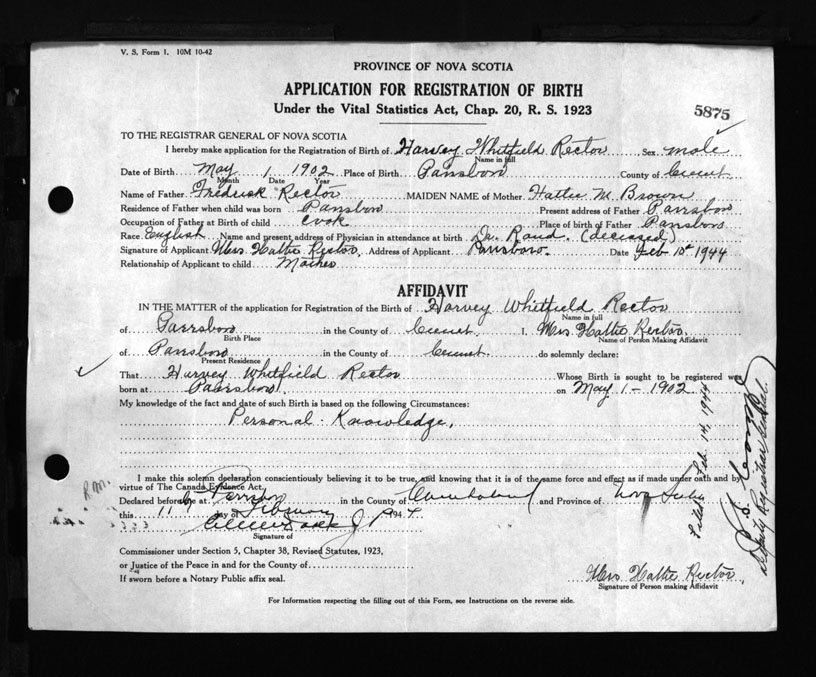 V. S. Form 1. 10M 10-42
PROVINCE OF NOVA SCOTIA
APPLICATION FOR REGISTRATION OF BIRTH
Under the Vital Statistics Act, Chap. 20, R. S. 1923
5875
TO THE REGISTRAR GENERAL OF NOVA SCOTIA
I hereby make application for the Registration of Birth of Harvey Whitfield Rector Sex male
Name in full
Date of Birth May 1 1902 Place of Birth Parrsboro County of
Month Date Year
Name of Father Fredrick Rector MAIDEN NAME of Mother Hattie M. Brown
Residence of Father when child was born Parrsboro Present address of Father Parrsboro
Occupation of Father at Birth of child Cook Place of birth of Father Parrsboro
Race English Name and present address of Physician in attendance at birth Dr. Rand. (deceased)
Signature of Applicant Mrs. Hattie Rector Address of Applicant Parrsboro. Date Feb 10th 1944
Relationship of Applicant to child Mother
AFFIDAVIT
IN THE MATTER of the application for Registration of the Birth of Harvey Whitfield Rector
Name in full
of Parrsboro in the County of I, Mrs Hattie Rector
Birth Place Name of Person Making Affidavit
of Parrsboro in the County of do solemnly declare:
Present Residence
That Harvey Whitfield Rector Whose Birth is sought to be registered was
born at Parrsboro on May 1 - 1902
My knowledge of the fact and date of such Birth is based on the following Circumstances:
Personal Knowledge.
I make this solemn declaration conscientiously believing it to be true, and knowing that it is of the same force and effect as if made under oath and by
virtue of The Canada Evidence Act.
R.M.
Declared before me at Parrsboro in the County of Cumberland and Province of Nova Scotia
this 11 day of February 1944.
J P
Signature of
Commissioner under Section 5, Chapter 38, Revised Statutes, 1923,
or Justice of the Peace in and for the County of
If sworn before a Notary Public affix seal.
Mrs. Hattie Rector
Signature of Person making Affidavit
For Information respecting the filling out of this Form, see Instructions on the reverse side.
Filed Feb. 14, 1944
Deputy Registrar General.